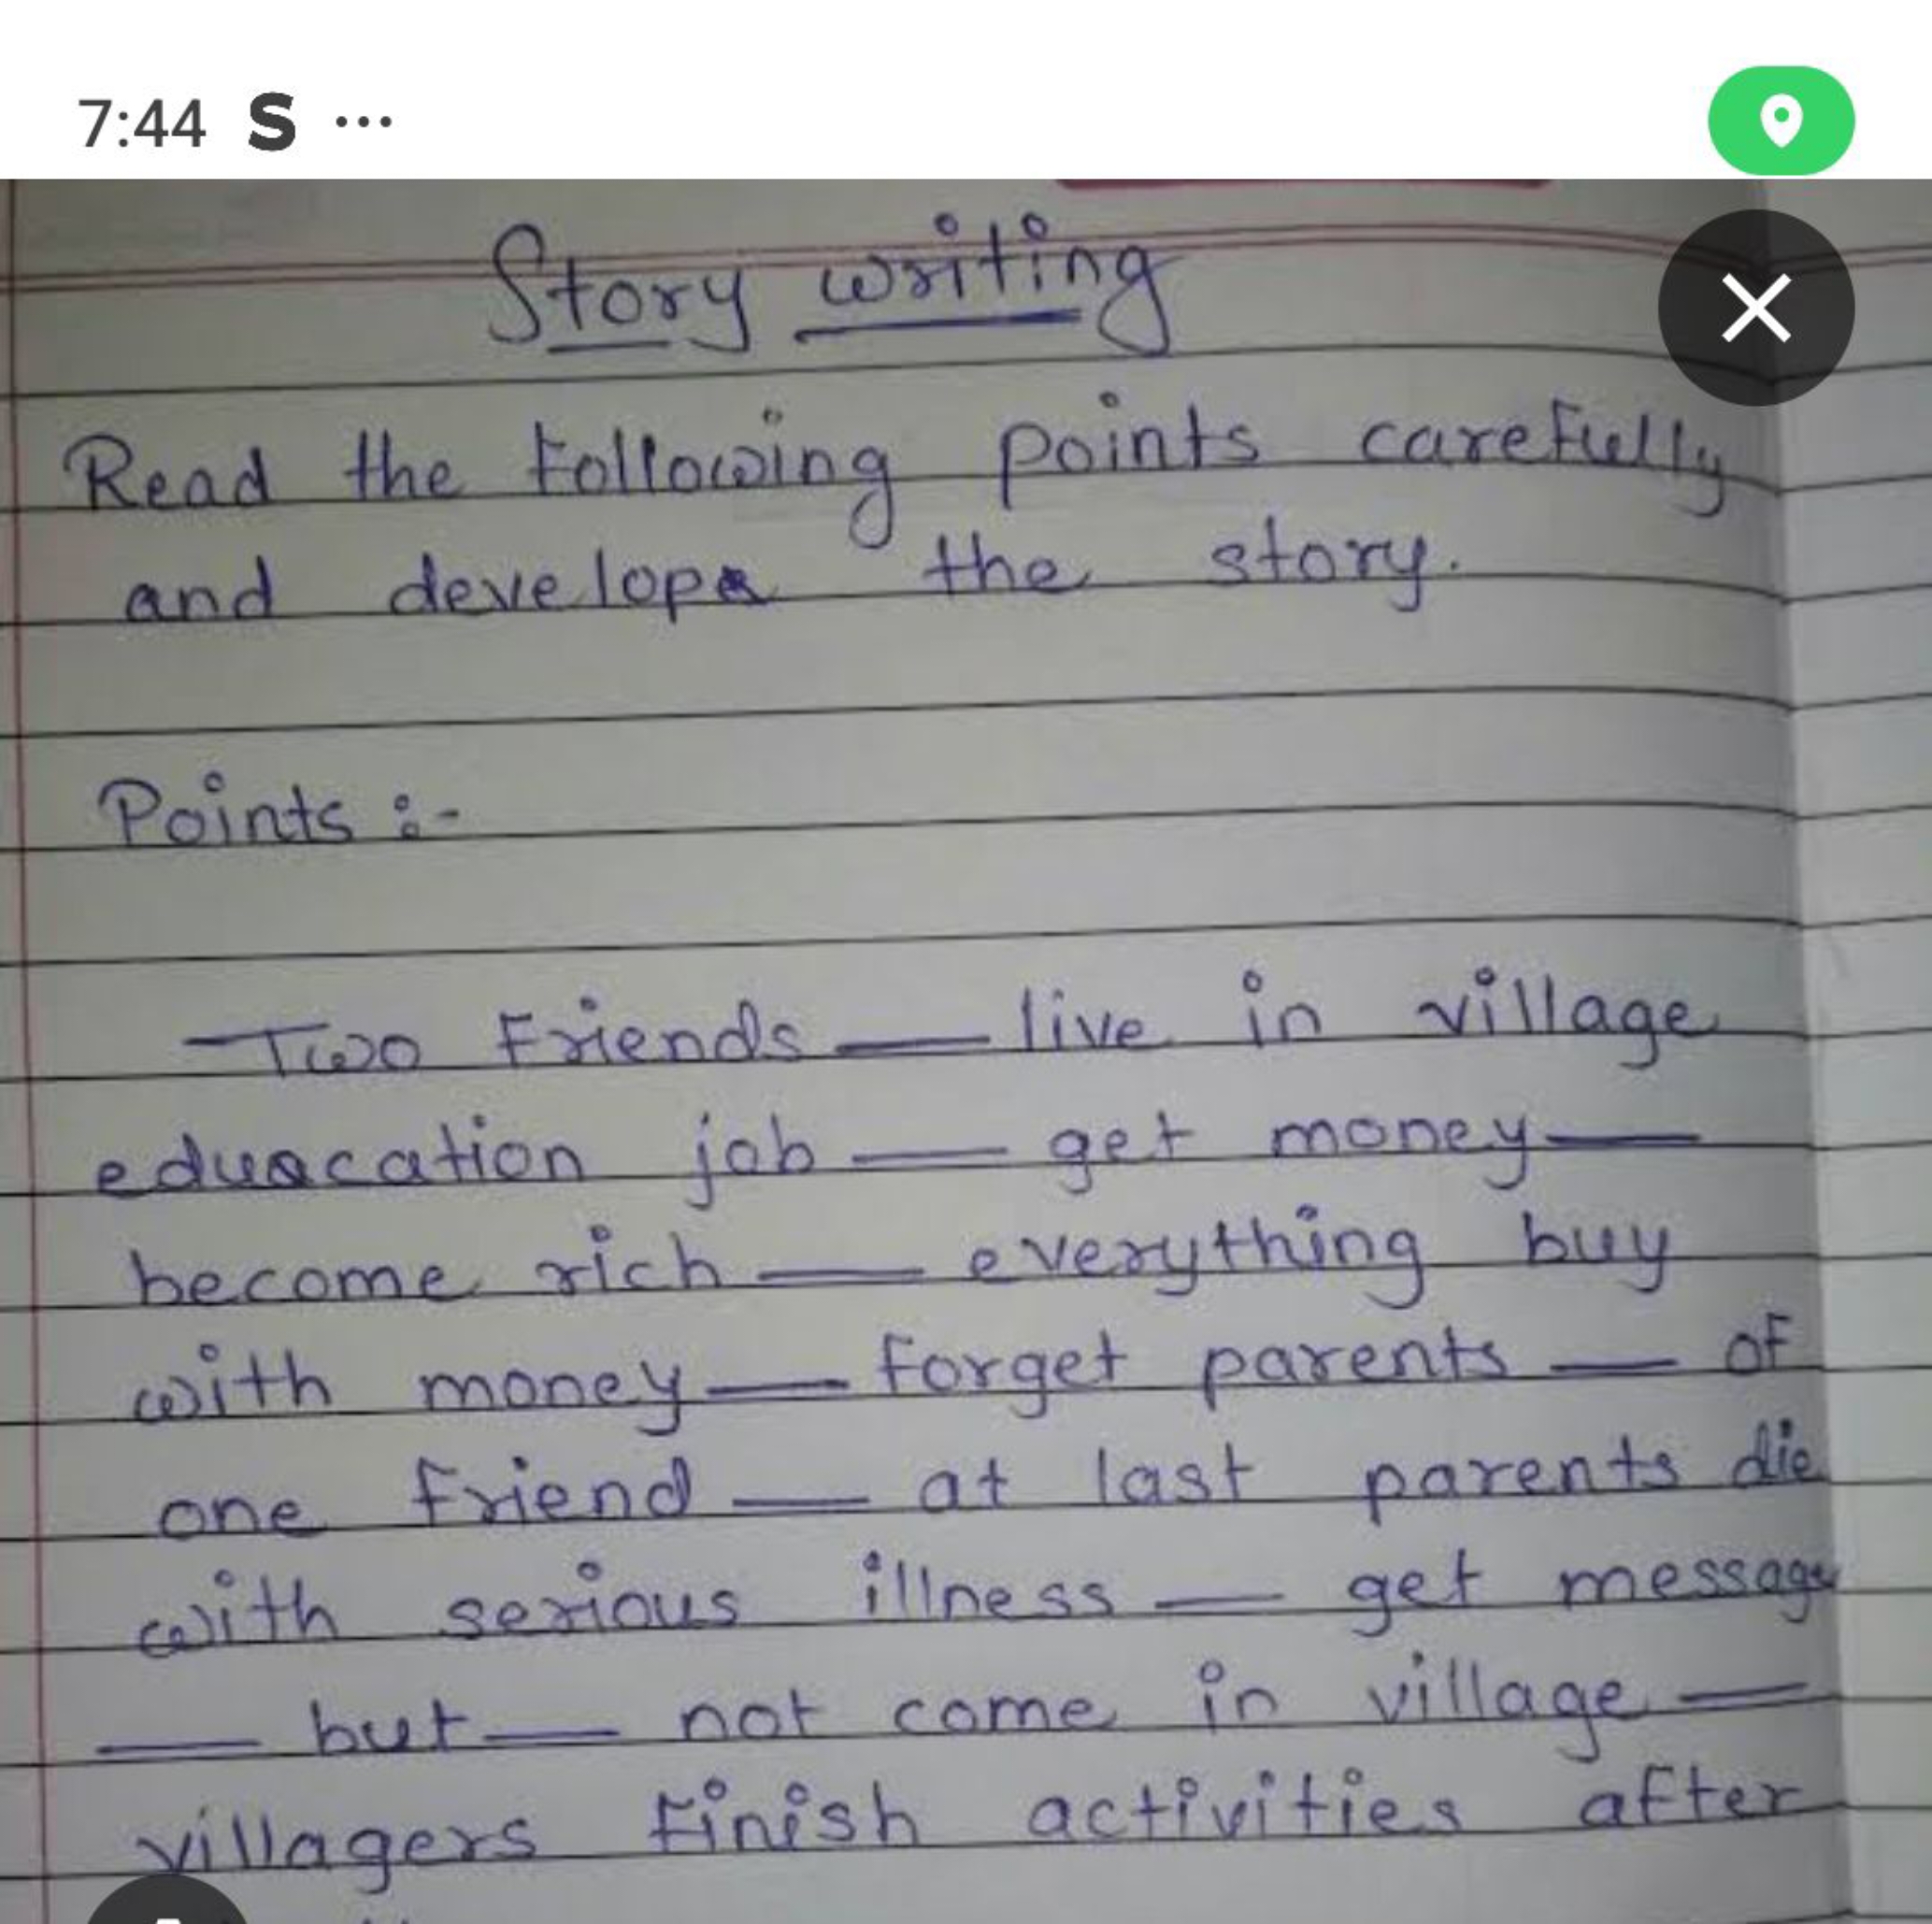 7:44 S ...
Story writing
Read the following points carefully
and develope the story.
Points :-
Two Friends — live in village
eduacation job — get money —
become rich — everything buy
with money — forget parents — of
one friend — at last parents die
with serious illness — get message
— but — not come in village —
villagers finish activities after